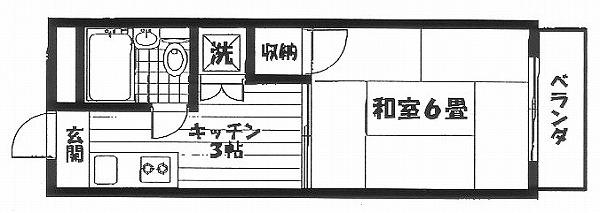 洗
収納
和室6畳
ベランダ
玄関
キッチン
3帖